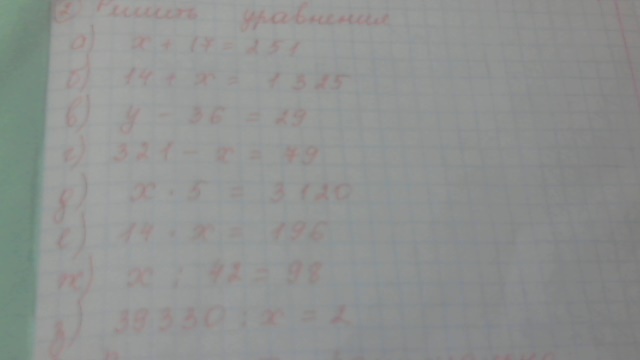 2) Решить уравнения
а) x + 17 = 251
б) 14 + x = 1325
в) y - 36 = 29
г) 321 - x = 79
д) x · 5 = 3120
е) 14 · x = 196
ж) x : 42 = 98
з) 39330 : x = 2